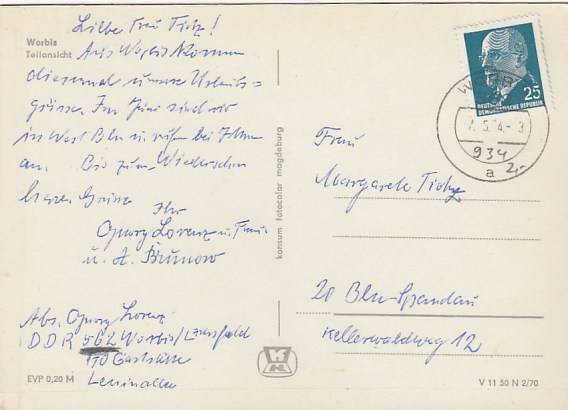 Worbis
Teilansicht
Liebe Frau Tietz!
Aus Worbis kommen
diesmal unsere Urlaubs=
grüsse. Im Juni sind wir
in West Bln u. rufen bei Ihnen
an. Bis zum Wiedersehen
herzl. Grüsse
Ihr
Georg Lorenz u. Frau
u. A. Brunow
Abs. Georg Lorenz
DDR 562 Worbis/
170 Gaststätte
Leninallee
EVP 0,20 M
konsum fotocolor magdeburg
25
DEUTSCHE
DEMOKRATISCHE REPUBLIK
934
a
2,-
Frau
Margarete Tietz
20 Bln-Spandau
Kellerwaldweg 12
V 11 50 N 2/70